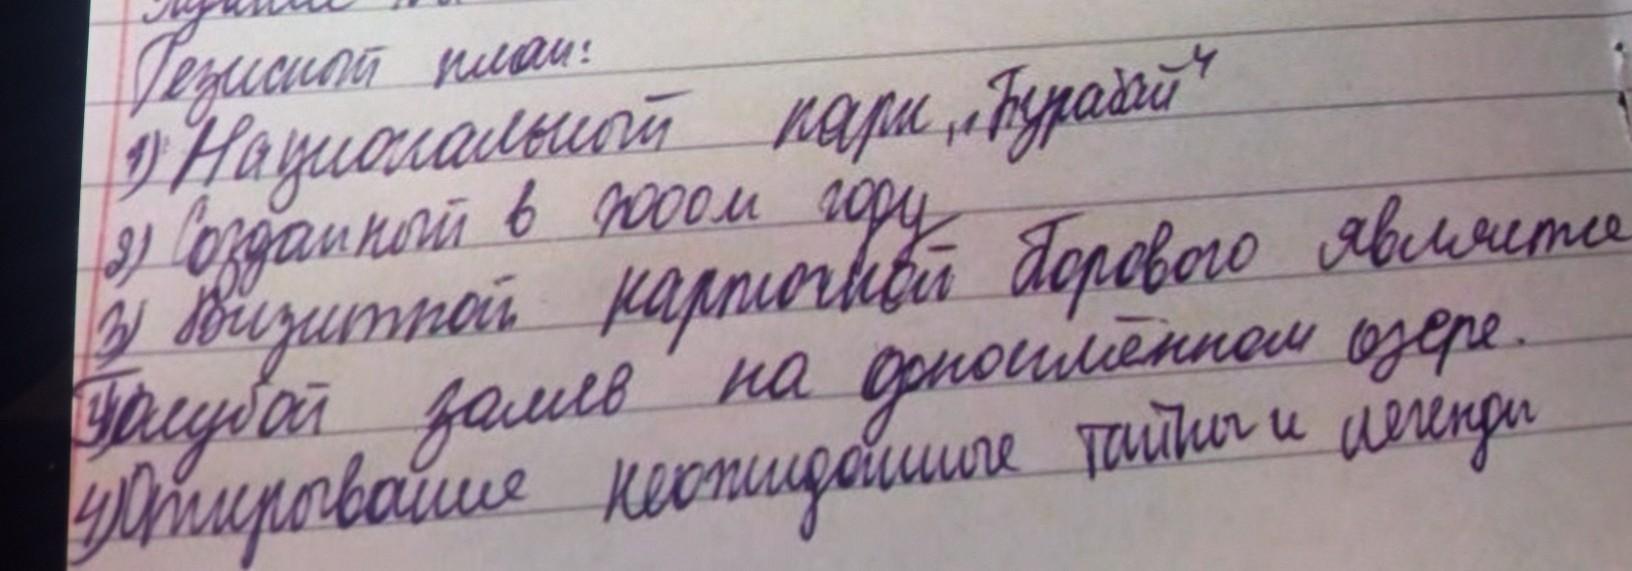 Тезисной план:
1) Национальной парк „Бурабай“
2) Созданной в 2000м году
3) Визитной карточкой Борового является
Голубой залив на одноимённом озере.
4) Открывание неожиданные тайны и легенды